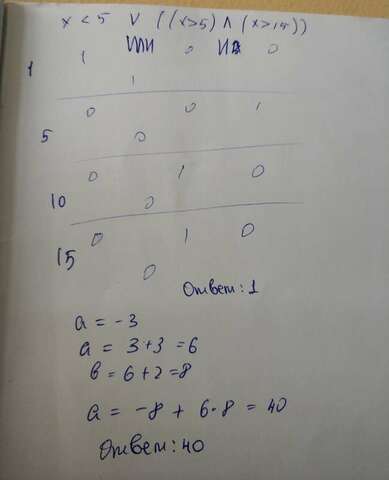 x < 5 ∨ ((x>5) ∧ (x>15))
1 ИЛИ 0 И 0
1
1
0 0 1
5
0
0 1 0
10
0
0 1 0
15
0
Ответ: 1
a = -3
a = 3+3 =6
b = 6+2 =8
a = -8 + 6·8 = 40
Ответ: 40